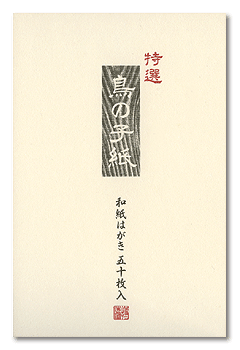 特選
鳥の子紙
和紙はがき 五十枚入